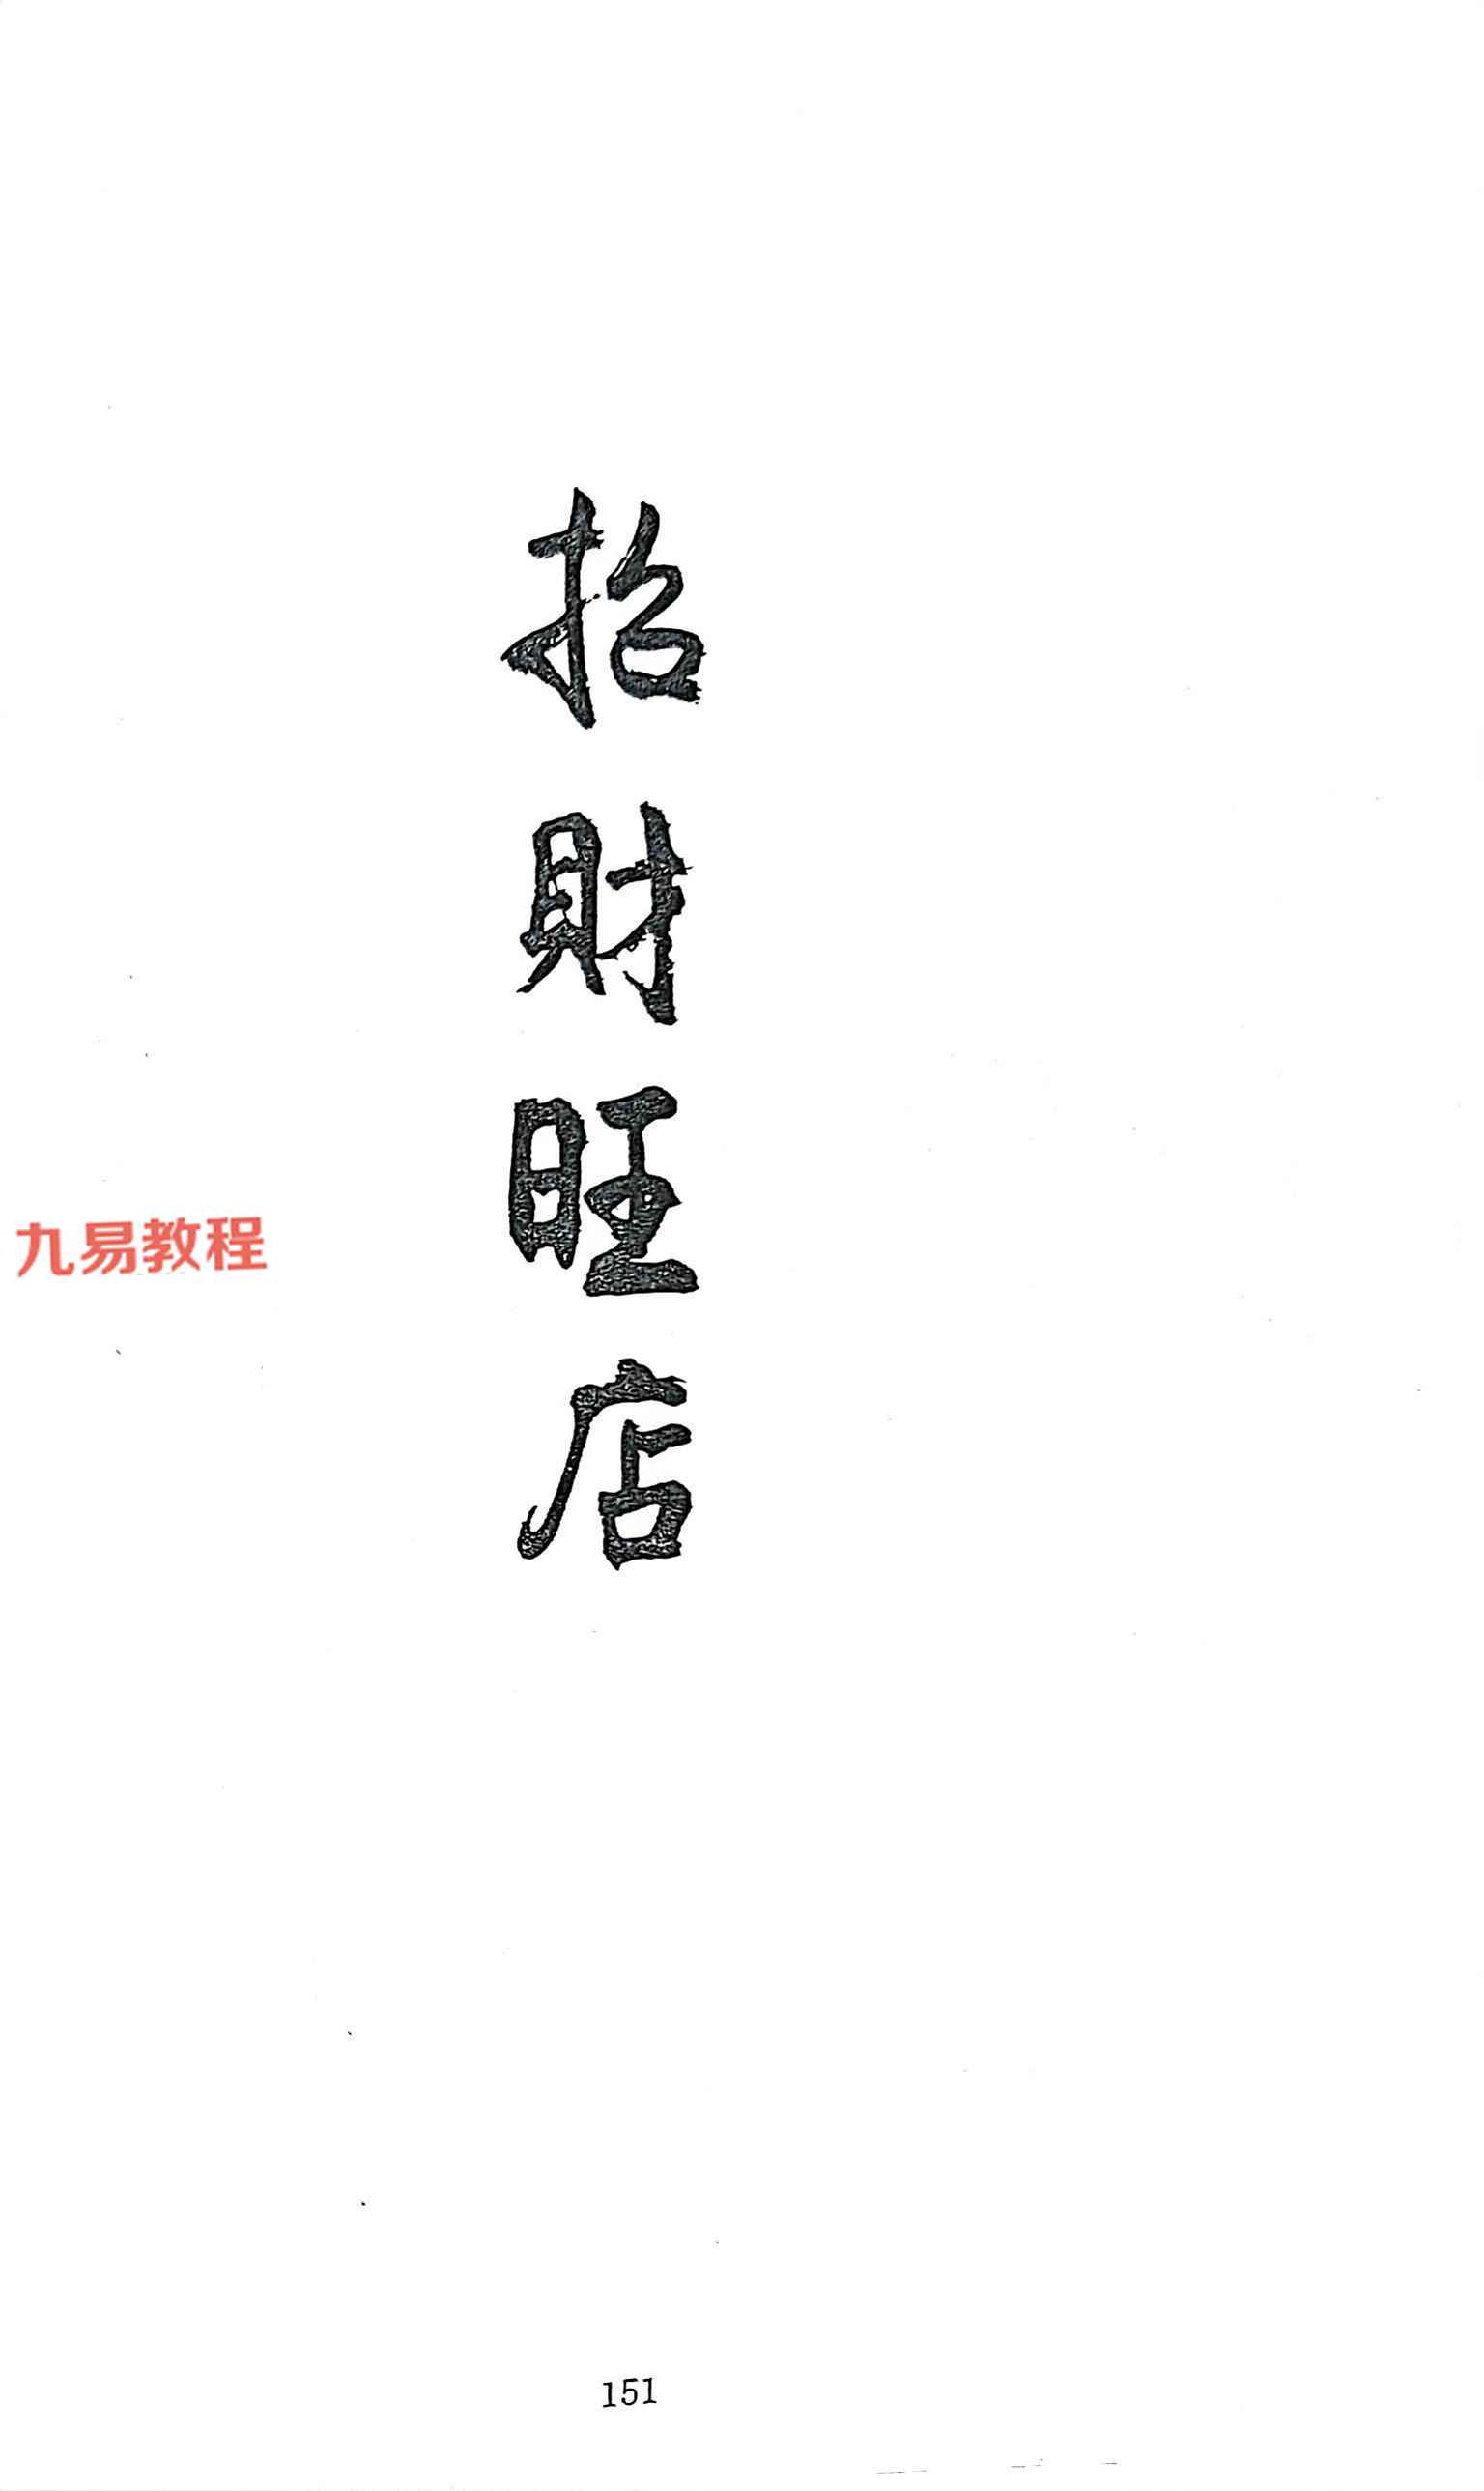 招財旺店
九易教程
151